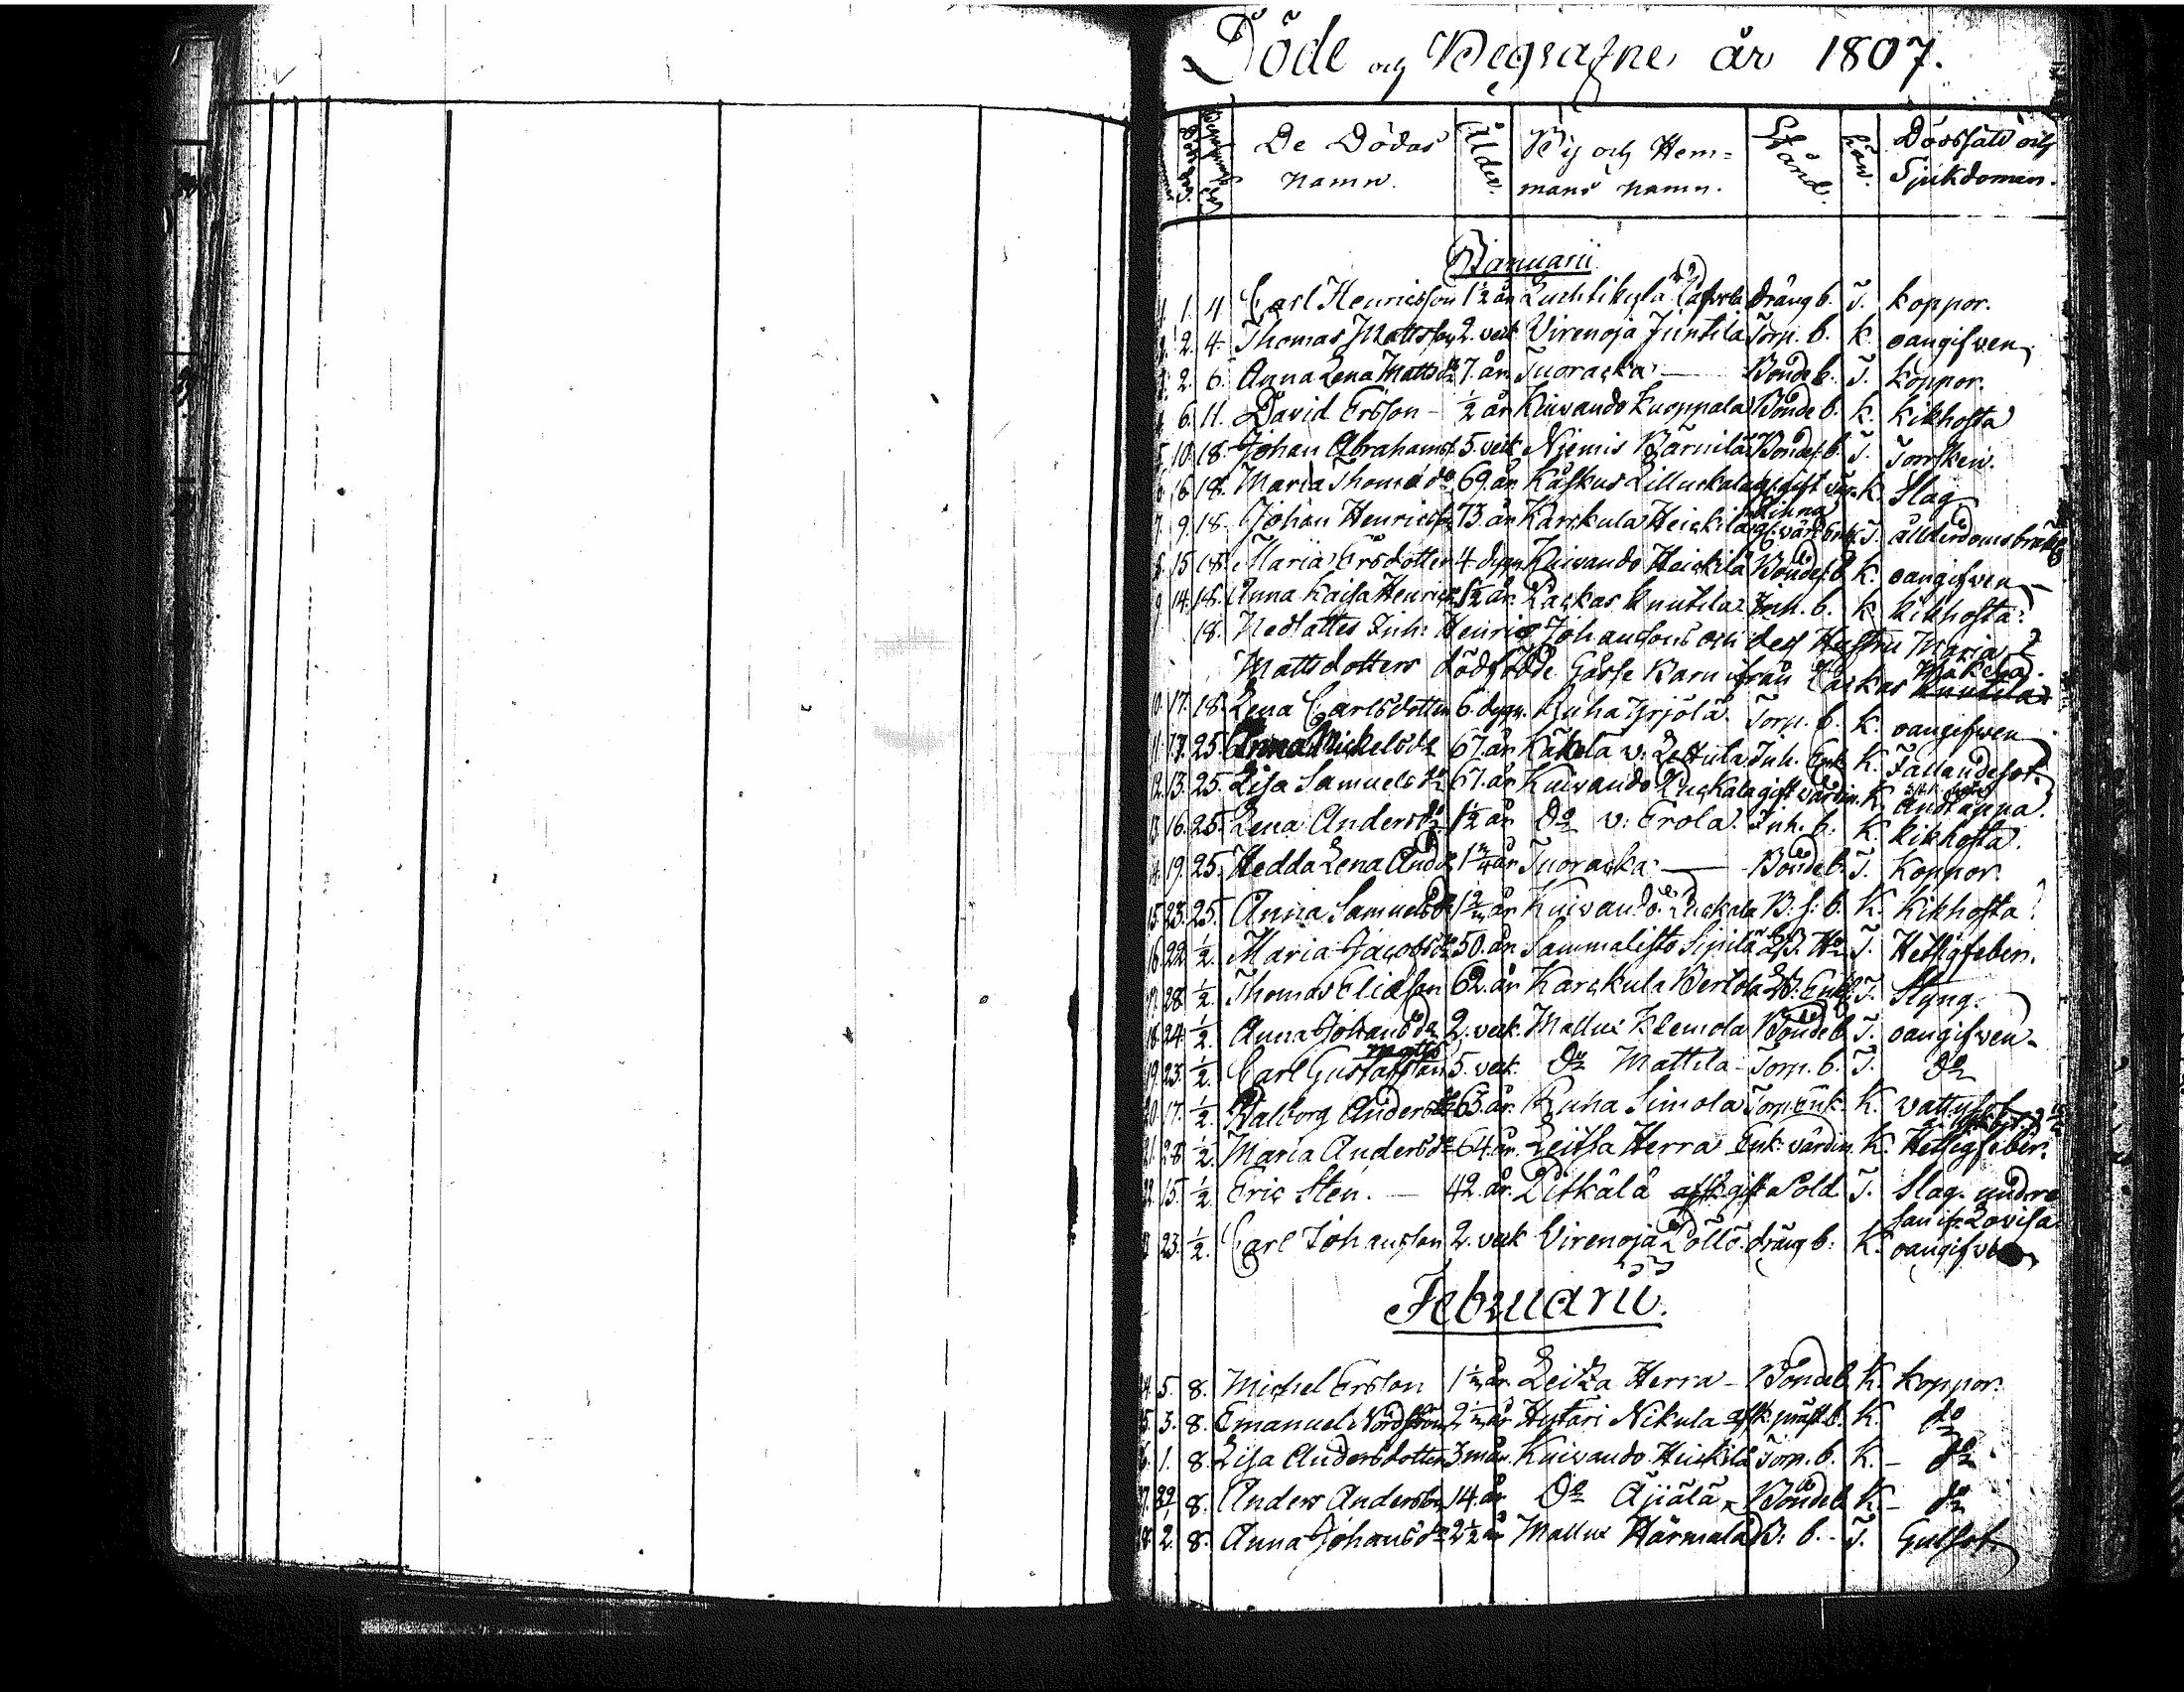 Döde och Begrafne år 1807.
De Dödas namn. Ålder. By och Hemmans namn. Stånd. Kön. Dödssätt och Sjukdomen.
Januarii
1. 1. 4 Carl Henricsson 1½ år Luchtikylä dräng b. T. koppor.
2. 2. 4. Thomas Mattsson 2. veck Virenoja Juntila Torp. b. K. oangifven
3. 2. 6. Anna Lena Mattsdr 7. år Tuoracka Bonde b. T. koppor.
4. 6. 11. David Ersson ½ år Kuivando Kuoppala Bonde b. K. Kikhosta
5. 10. 18. Johan Abrahamss 5. veck Niemis Bonde b. T. Torrsken.
6. 16. 18. Maria Thomædr 69. år Kåskus Lilluckala K. Slag
7. 9. 18. Johan Henricsson 73. år Karckula Heickilä T. ålderdomsbräck
8. 15 18. Maria Ersdotter 4 dygn Kuivando Heickilä Bonde b. K. oangifven
9. 14. 18. Anna Kaisa Henricsdr 1½ år Packas Knutila Inh. b. K kikhosta
18. Inh: Henric Johanssons och dess Hustru Maria
Mattsdotters dödfödde Gosse Barn ifrån Mäkelä
10. 17. 18. Lena Carlsdotter 6. dygn. Ruha Yrjölä Torp. b. K. oangifven
11. 17. 25. Anna Mickelsdr 67. år Käkelä v. Lettula Inh. Enk. K. Fallandesot
12. 13. 25. Lisa Samuelsdr 67. år Kuivando Luckala gift värdin. K.
13. 16. 25. Lena Andersdr 1½ år Do v: Erola. Inh. b. K. kikhosta.
14. 19. 25. Hedda Lena Andr 1¾ år Tuoracka Bonde b. T. koppor.
15. 23. 25. Anna Samuelsdr Kuivando Luckala B. s: b. K. kikhosta
16. 22 ½. Maria Jacobsdr 50. år. Sammalisto Sipilä T. Hetsigfeber.
17. 28. ½. Thomas Eliasson 62. år Karckula Bertola T. Styng.
18. 24. ½. Anna Johansdr 2. veck. Mallux Klemola Bonde b. T. oangifven
19. 23. ½. Carl Gustaf 5. veck. Do Mattila Torp. b. T. Do
20. 17. ½. Walborg Andersdr 63. år. Ruha Simola Torp. Enk. K.
21. 28 ½. Maria Andersdr 64. år. Leitsa Herra Enk: värdin K. Hetsigfeber.
22. 15. ½ Eric Sten. 42. år. Pitkälä gift Sold T. Slag. under
Lovisa
23. ½. Carl Johansson 2. veck Virenoja Pöllö. dräng b: K. oangifven
Februarii.
5. 8. Michel Ersson 1½ år Leitza Herra Bonde b K. koppor.
3. 8. Emanuel Nordström 2½ år Hytäri Nikula K. do
1. 8. Lisa Andersdotter 3 mån. Kuivando Heickilä Torp. b. K. do
8. Anders Andersson 14. år Do Äjälä Bonde b K. do
2. 8. Anna Johansdr 2½ år Mallux Härmälä B: b. T. Gulsot